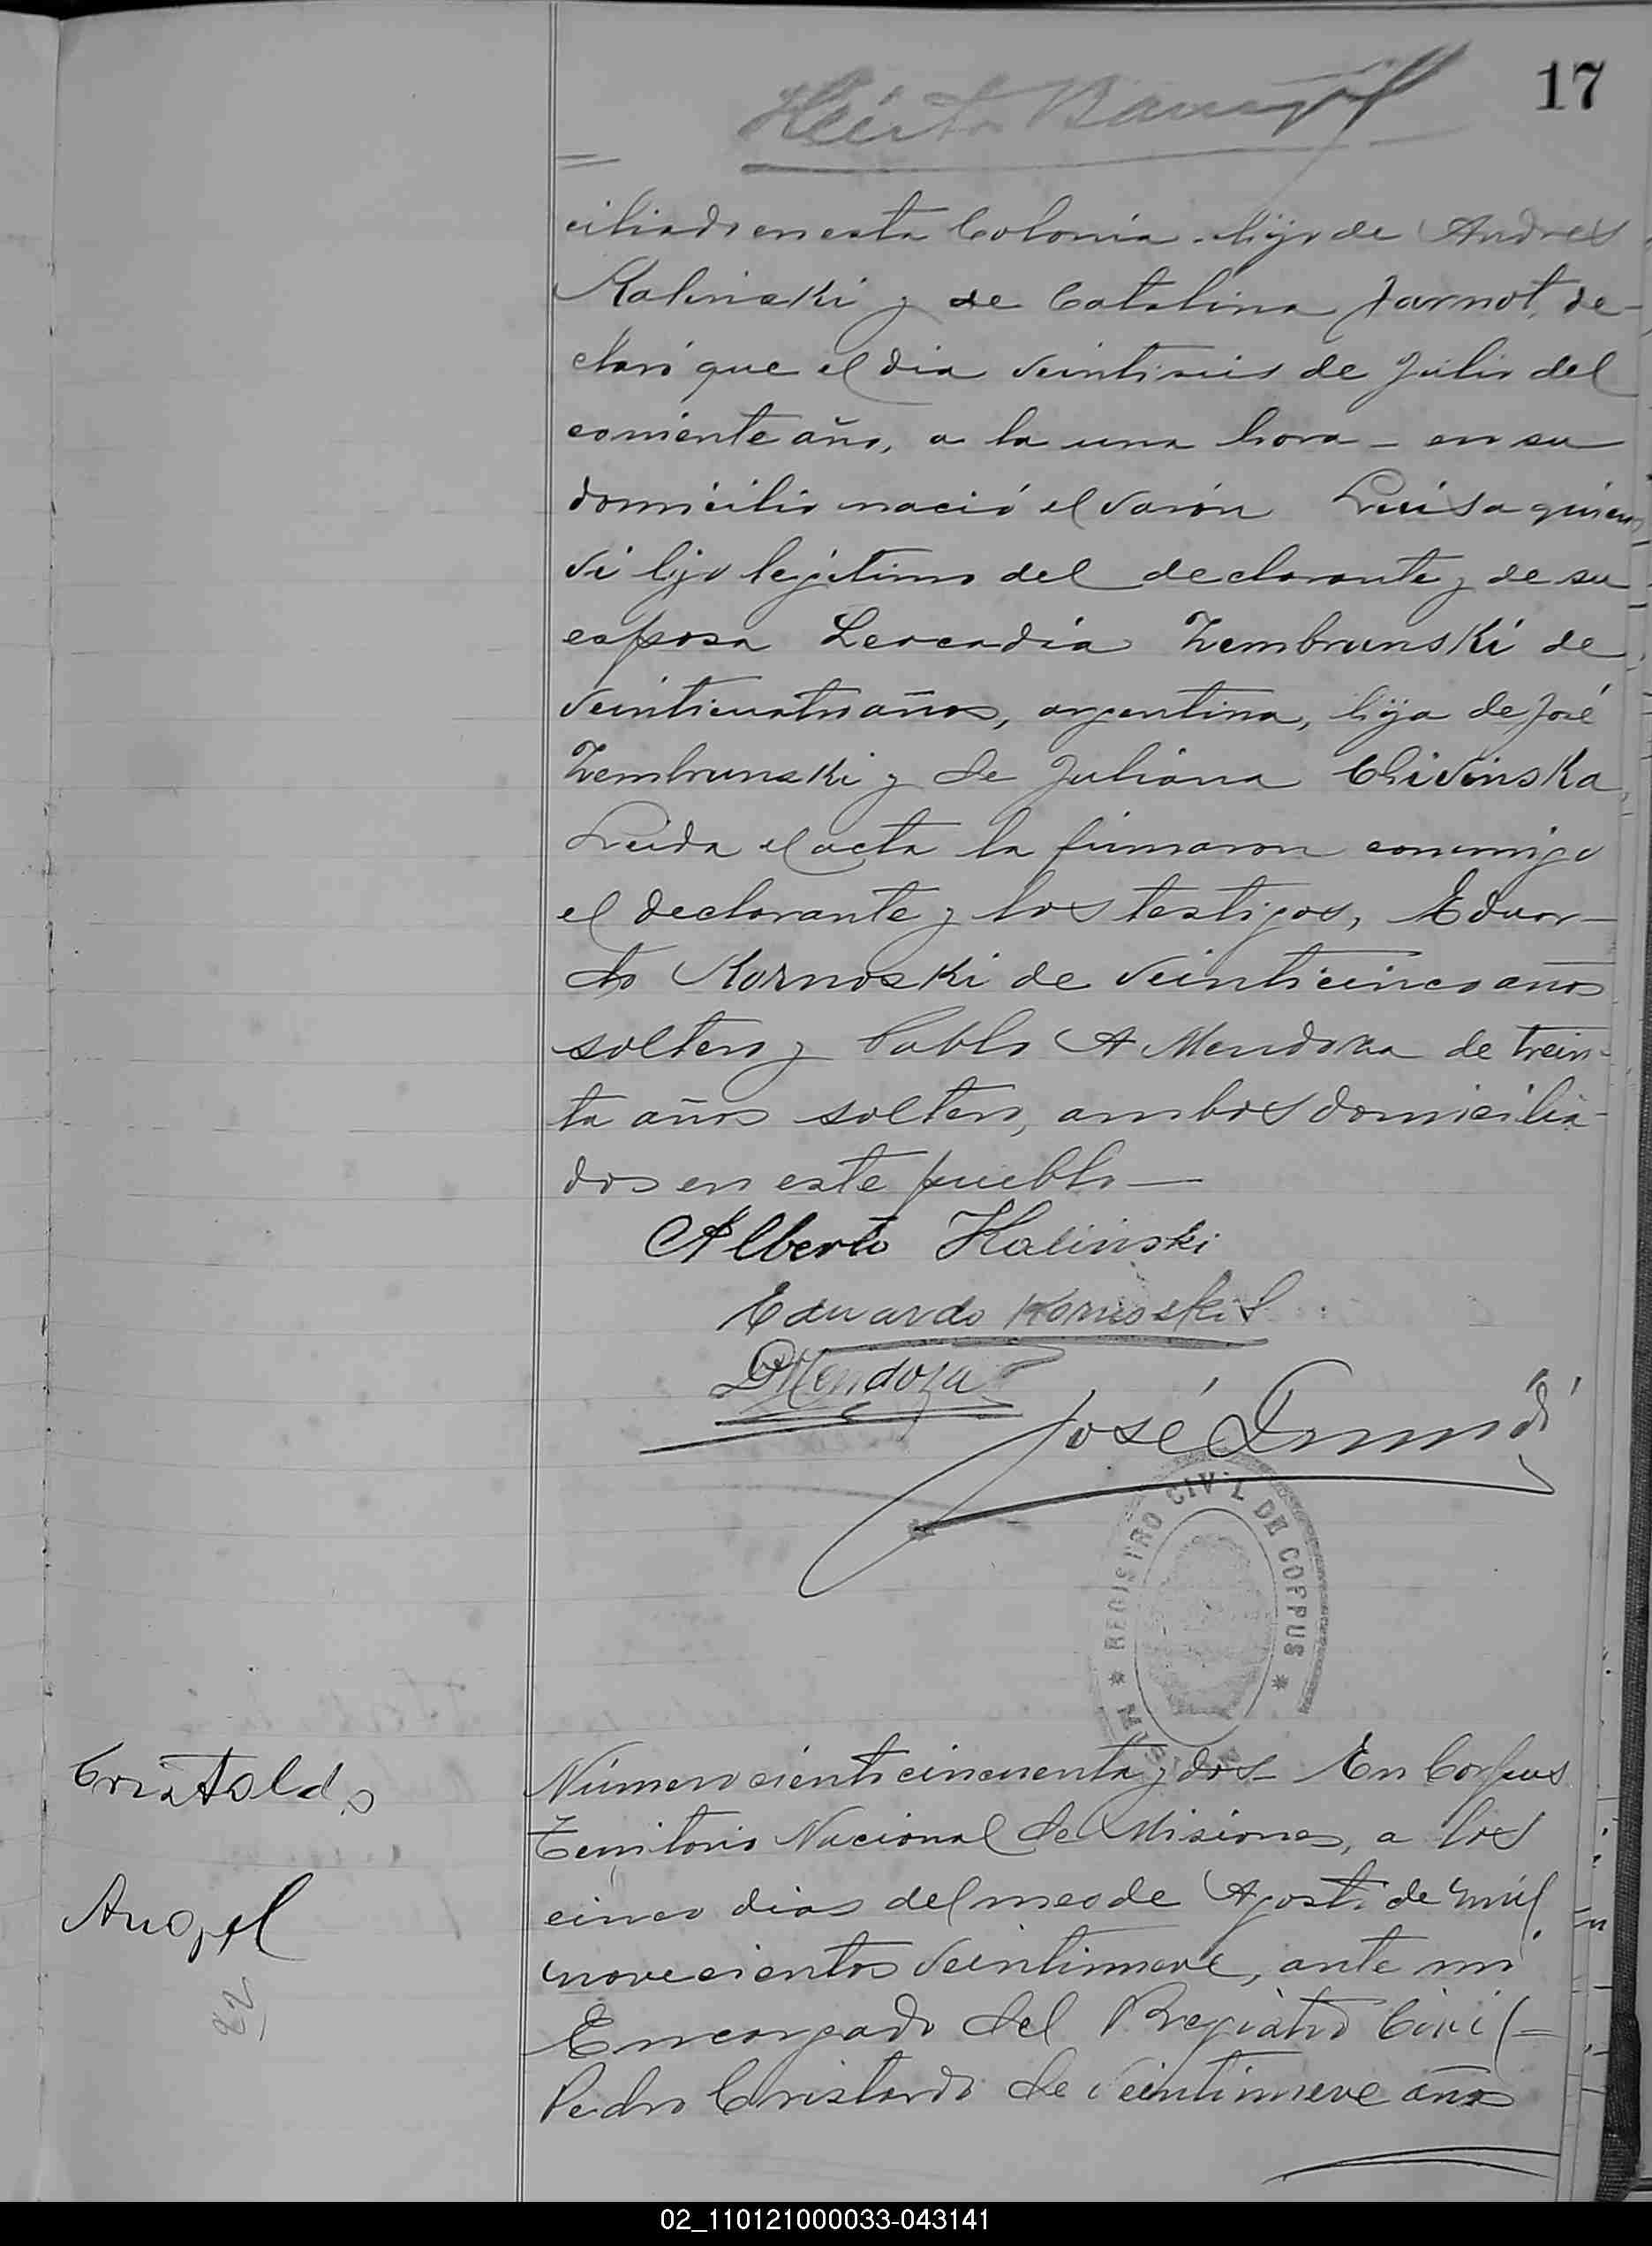 17
ciliado en esta Colonia. hijo de Andres
Kalinski y de Catalina Jarnot, de-
claró que el dia veintiseis de Julio del
corriente año, a la una hora - en su
domicilio nació el varón Luisa quien
vi hijo legitimo del declarante y de su
esposa Leocadia Zembrunski de
veinticuatro años, argentina, hija de José
Zembrunski y de Juliana Chivinska,
Leida el acta la firmaron conmigo
el declarante y los testigos, Eduar-
do Kornoski de veinticinco años
soltero y Pablo A Mendoza de trein-
ta años soltero, ambos domicilia-
dos en este pueblo —
Alberto Kalinski
Eduardo Kornoski
PMendoza
José
REGISTRO CIVIL DE CORPUS
Cristaldo
Angel
Número ciento cincuenta y dos - En Corpus
Territorio Nacional de Misiones, a los
cinco dias del mes de Agosto de mil
novecientos veintinueve, ante mi
Encargado del Registro Civil -
Pedro Cristardo de veintinueve años
02_110121000033-043141